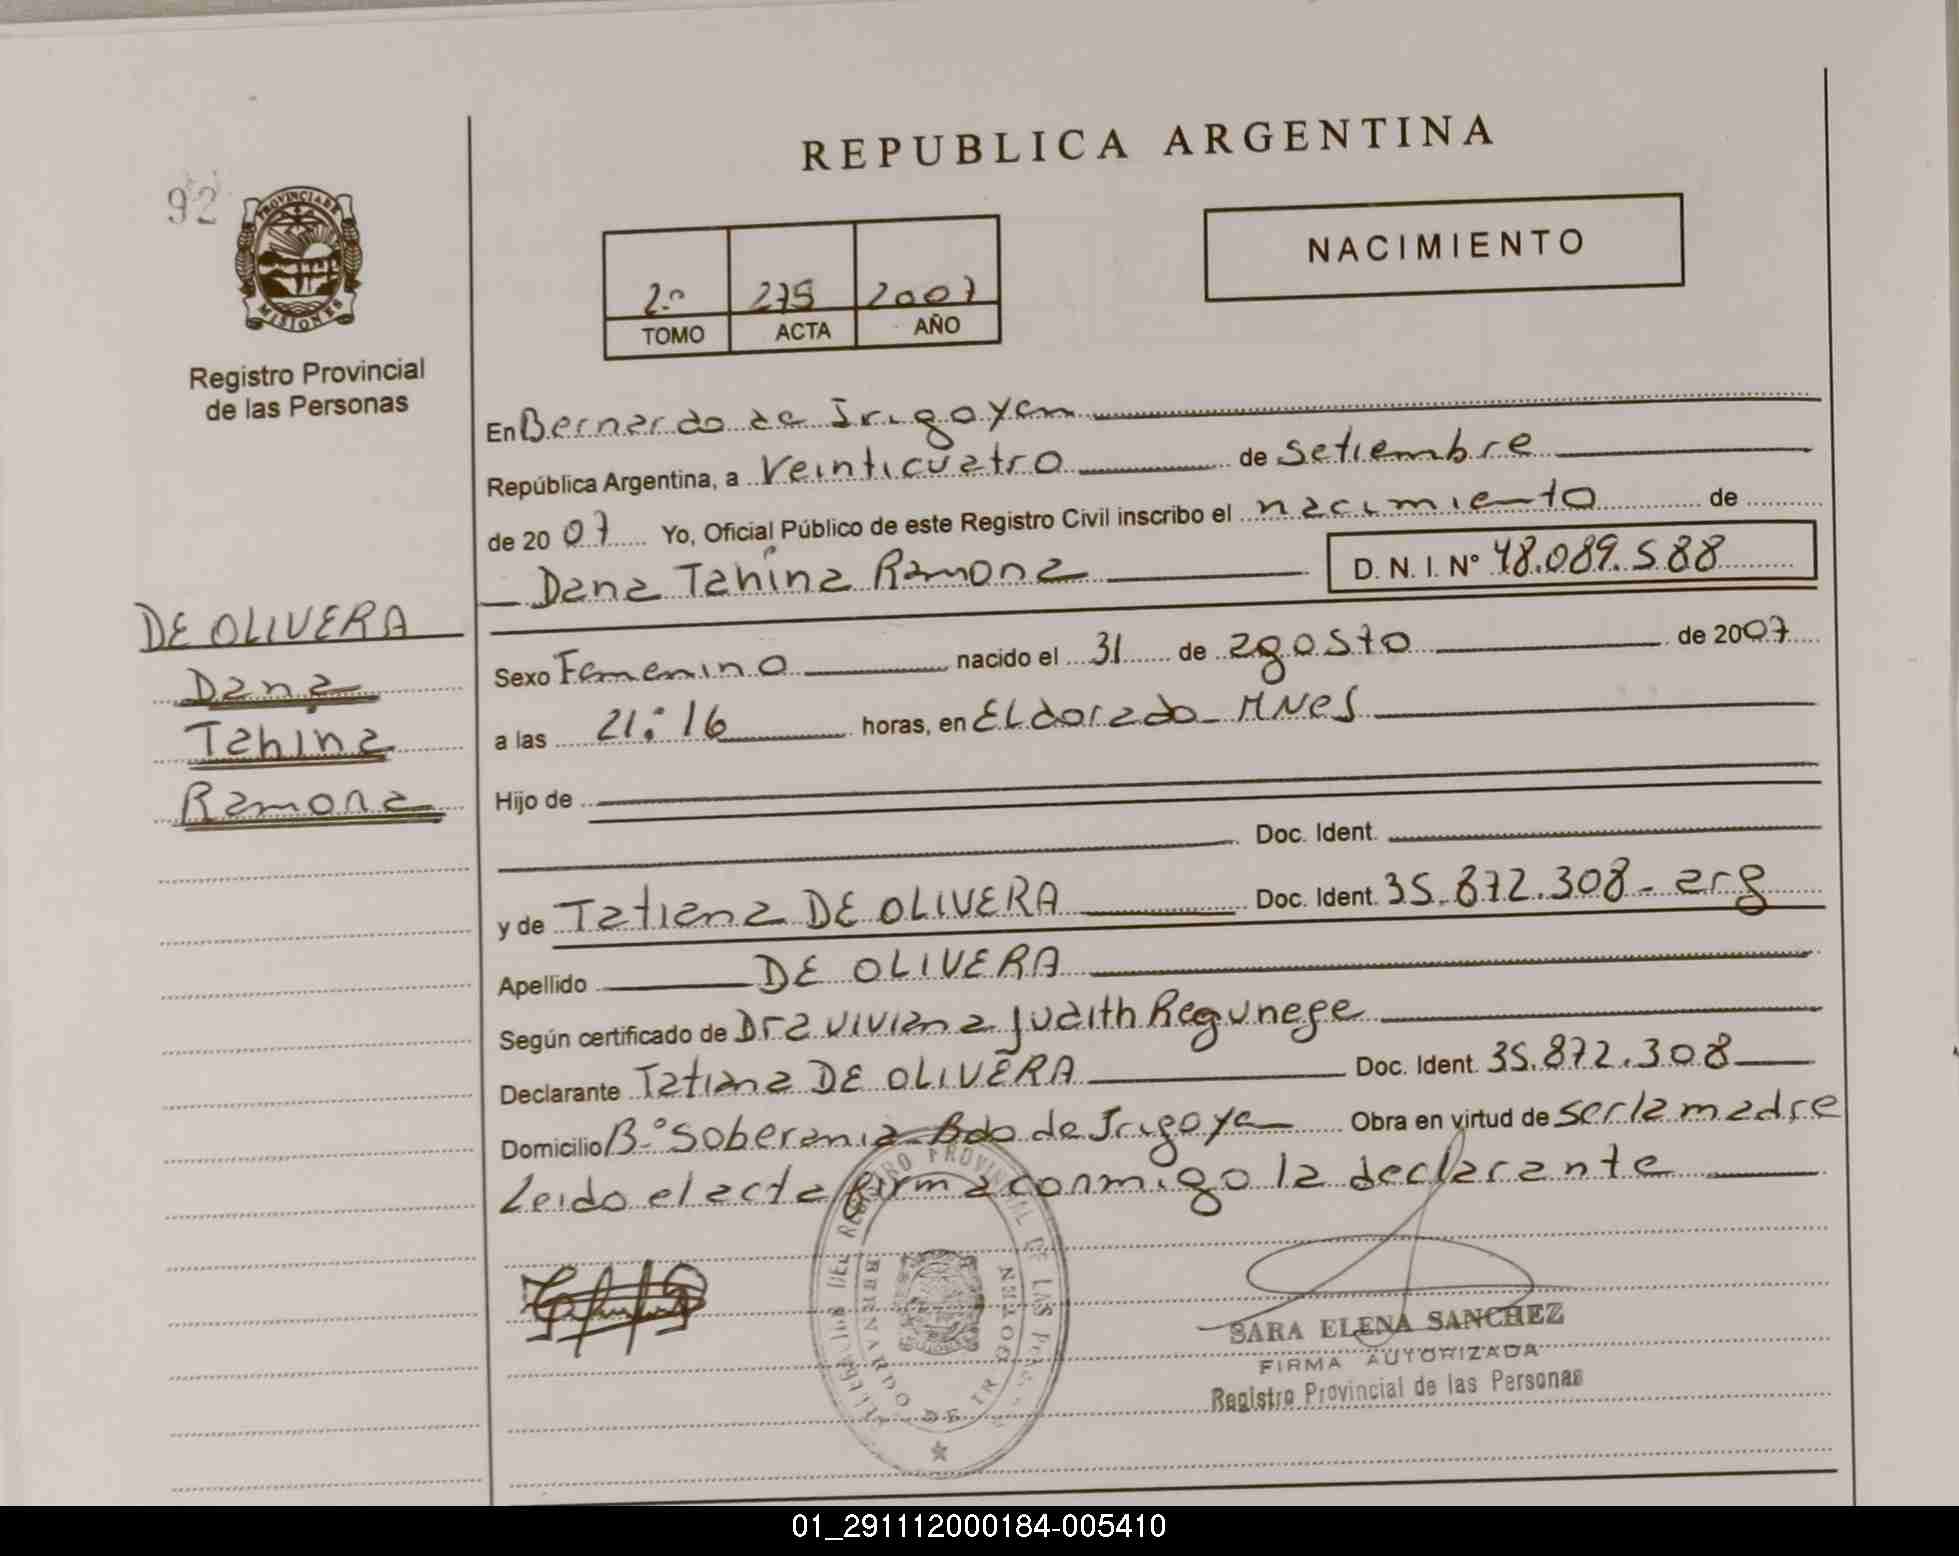 REPUBLICA ARGENTINA
92
PROVINCIA DE
MISIONES
Registro Provincial
de las Personas
NACIMIENTO
2º 275 2007
TOMO ACTA AÑO
En Bernardo de Irigoyen
República Argentina, a Veinticuatro de setiembre
de 2007 Yo, Oficial Público de este Registro Civil inscribo el nacimiento de
Dana Tahina Ramona D. N. I. Nº 48.089.588
DE OLIVERA
Dana
Tahina
Ramona
Sexo Femenino nacido el 31 de agosto de 2007
a las 21:16 horas, en Eldorado Mnes
Hijo de
Doc. Ident.
y de Tatiana DE OLIVERA Doc. Ident. 35.872.308 - arg
Apellido DE OLIVERA
Según certificado de Dra Viviana Judith
Declarante Tatiana DE OLIVERA Doc. Ident. 35.872.308
Domicilio Bº Soberania Bdo de Irigoyen Obra en virtud de ser la madre
Leido el acta firma conmigo la declarante
REGISTRO PROVINCIAL DE LAS
BERNARDO DE
SARA ELENA SANCHEZ
FIRMA AUTORIZADA
Registro Provincial de las Personas
01_291112000184-005410